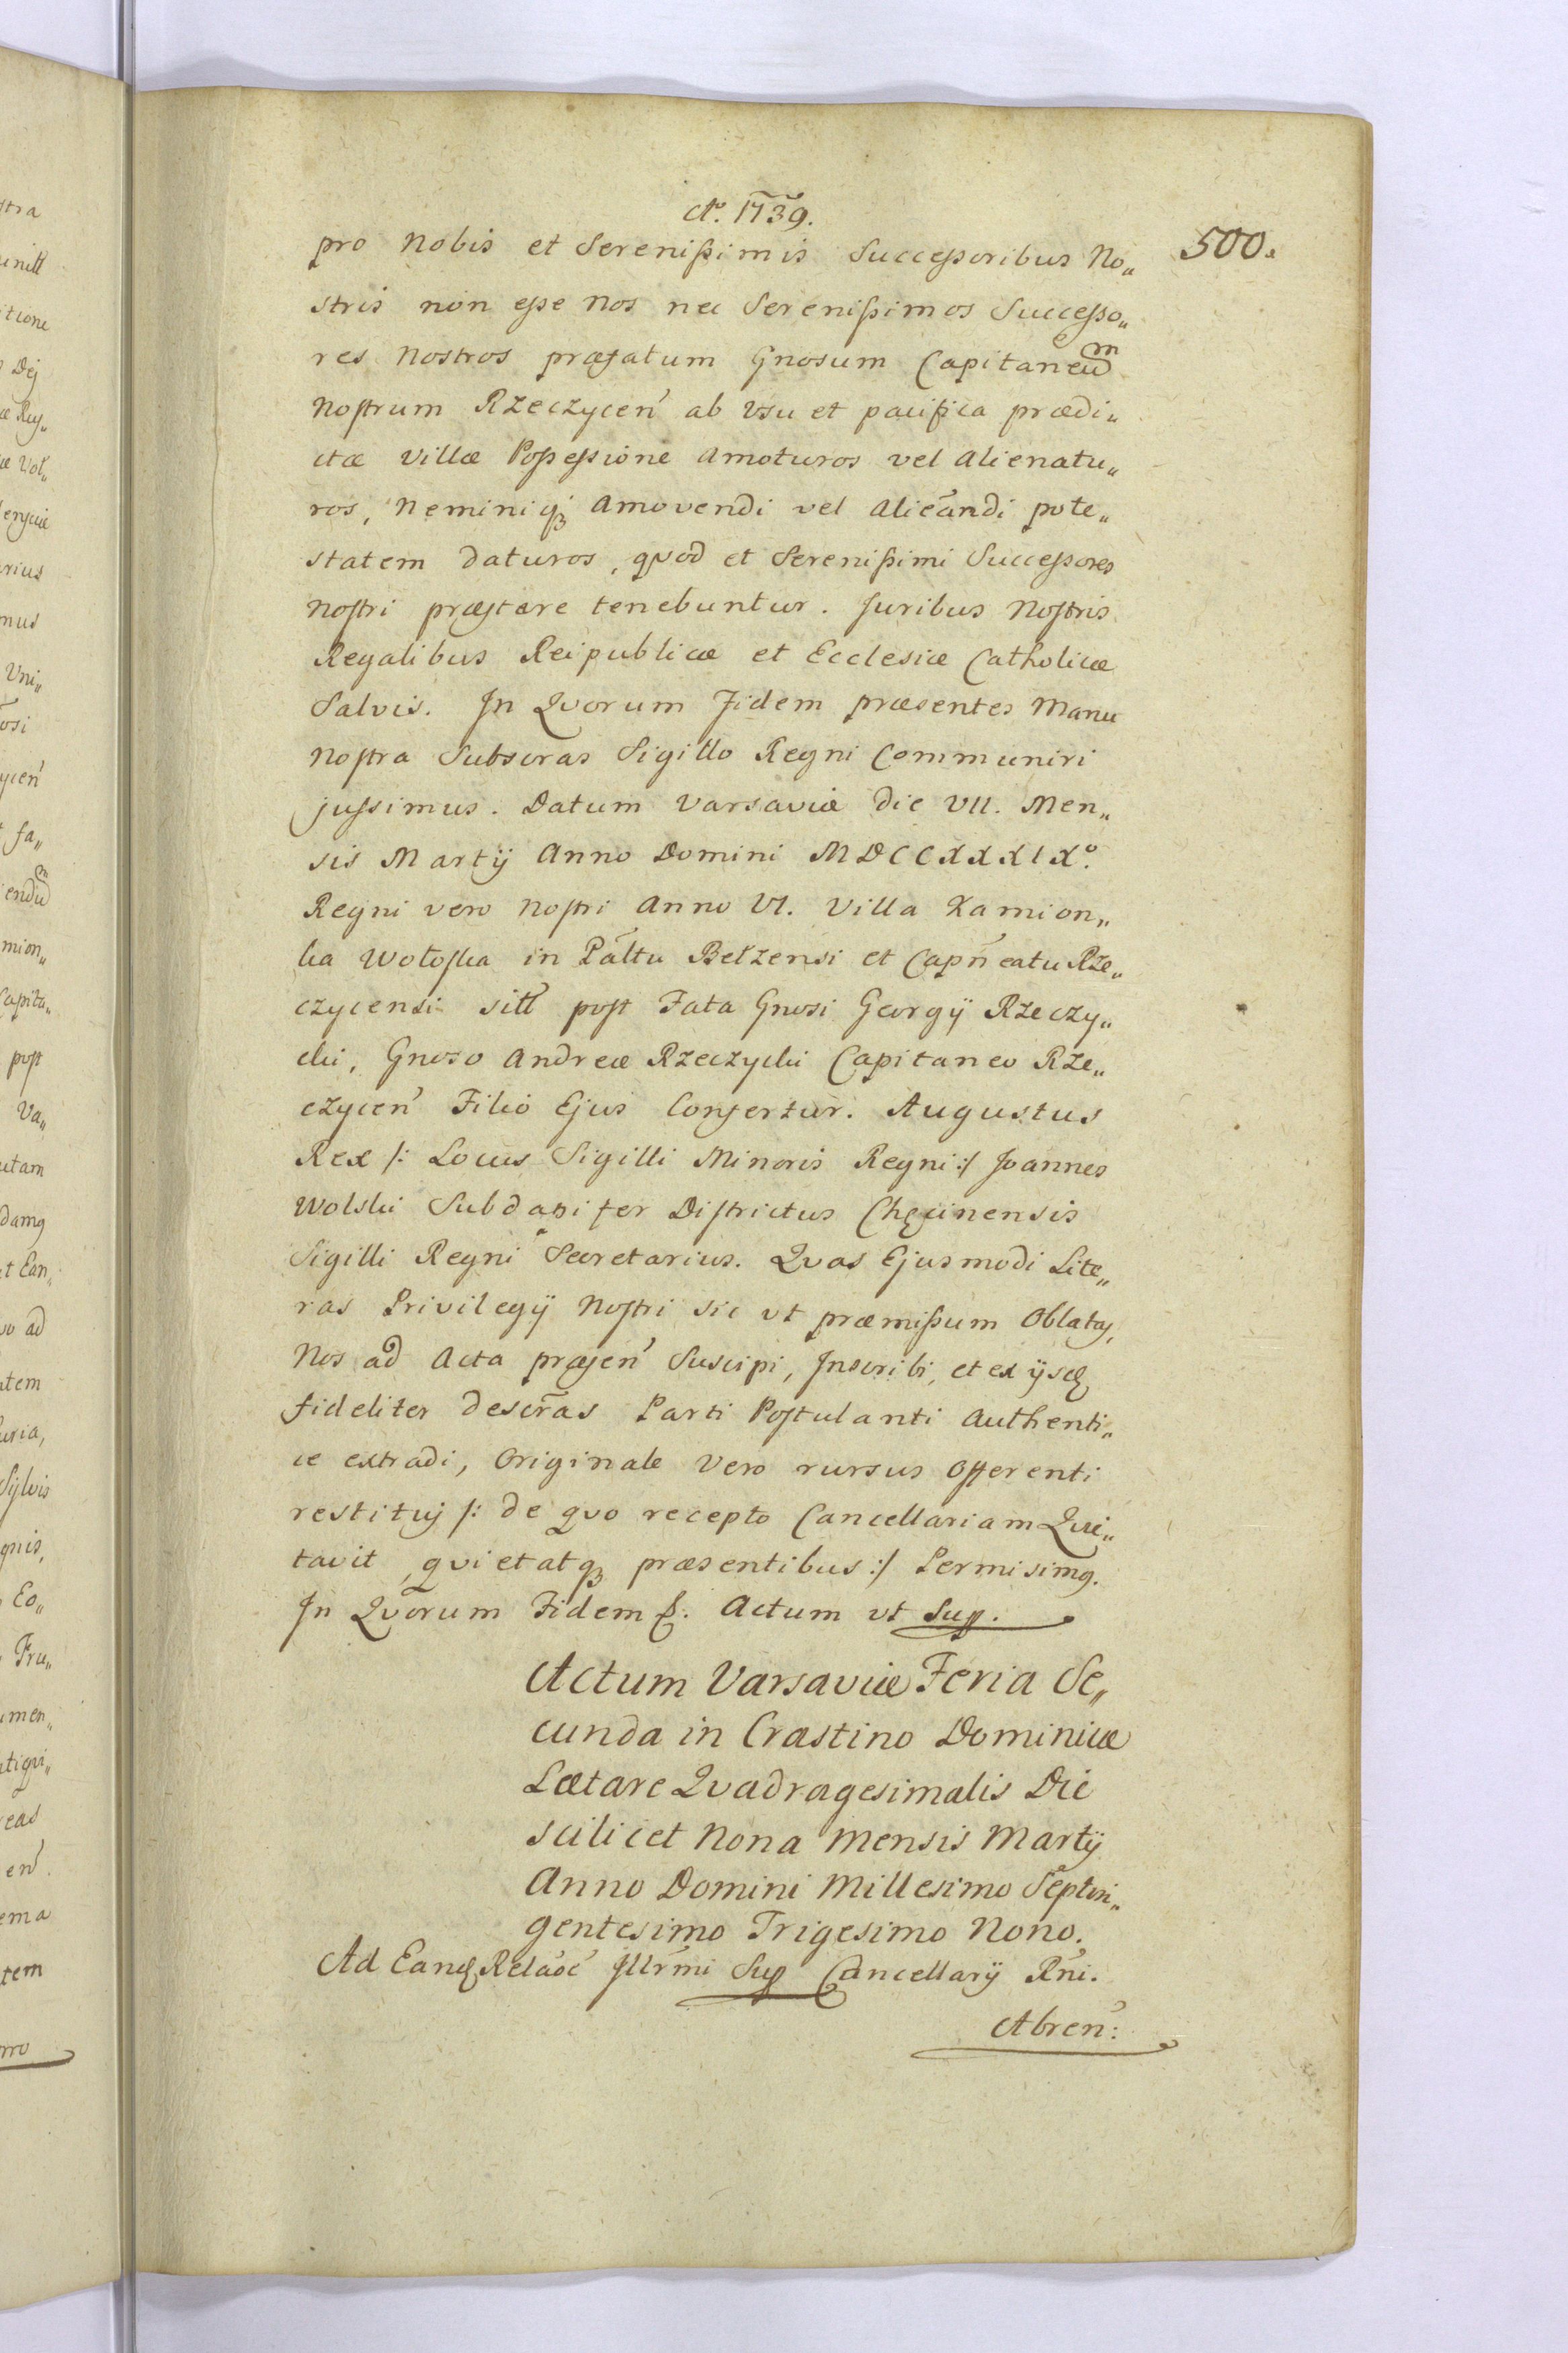 Aº. 1739.
500.
pro Nobis et Serenißimis Succeßoribus No„
stris non eße Nos nec Serenißimos Succeßo„
res Nostros præfatum Gnosum Capitaneum
Nostrum Rzeczyceń ab Vsu et pacifica prædi„
ctæ Villæ Poßeßione Amoturos vel Alienatu„
ros, Neminiq3 Amovendi vel Alieñandi pote„
statem daturos, qvod et Serenißimi Succeßores
Nostri præstare tenebuntur. Juribus Nostris
Regalibus Reipublicæ et Ecclesiæ Catholicæ
Salvis. In Qvorum Fidem præsentes Manu
Nostra Subscras Sigillo Regni Communiri
jußimus. Datum Varsaviæ Die VII. Men„
sis Martij Anno Domini MDCCXXXIXº.
Regni vero Nostri Anno VI. Villa Kamion„
ka Wołoska in Pāłtu Bełzensi et Capn̄eatu Rze„
czycensi sitt post Fata Gnosi Georgij Rzeczy„
cki, Gnoso Andreæ Rzeczycki Capitaneo Rze„
czyceń Filio Ejus Confertur. Augustus
Rex /: Locus Sigilli Minoris Regni :/ Joannes
Wolski Subdapifer Districtus Chęcinensis
Sigilli Regni Secretarius. Qvas Ejusmodi Lite„
ras Privilegij Nostri sic vt præmißum Oblatas,
Nos ad Acta præsen̄ Suscipi, Inscribi, et ex ijsd
fideliter descr̄as Parti Postulanti Authenti„
ce extradi, Originale vero rursus Offerenti
restituj /: de qvo recepto Cancellariam Qvie„
tavit, qvietatq3 præsentibus :/ Permisimg.
In Qvorum Fidem &. Actum vt Sup.
Actum Varsaviæ Feria Se„
cunda in Crastino Dominicæ
Lætare Qvadragesimalis Die
scilicet Nona Mensis Martij
Anno Domini Millesimo Septin„
gentesimo Trigesimo Nono.
Ad Eand Relaōē Jllr̄mi Sup Cancellarij Rn̄i.
Abren̄: